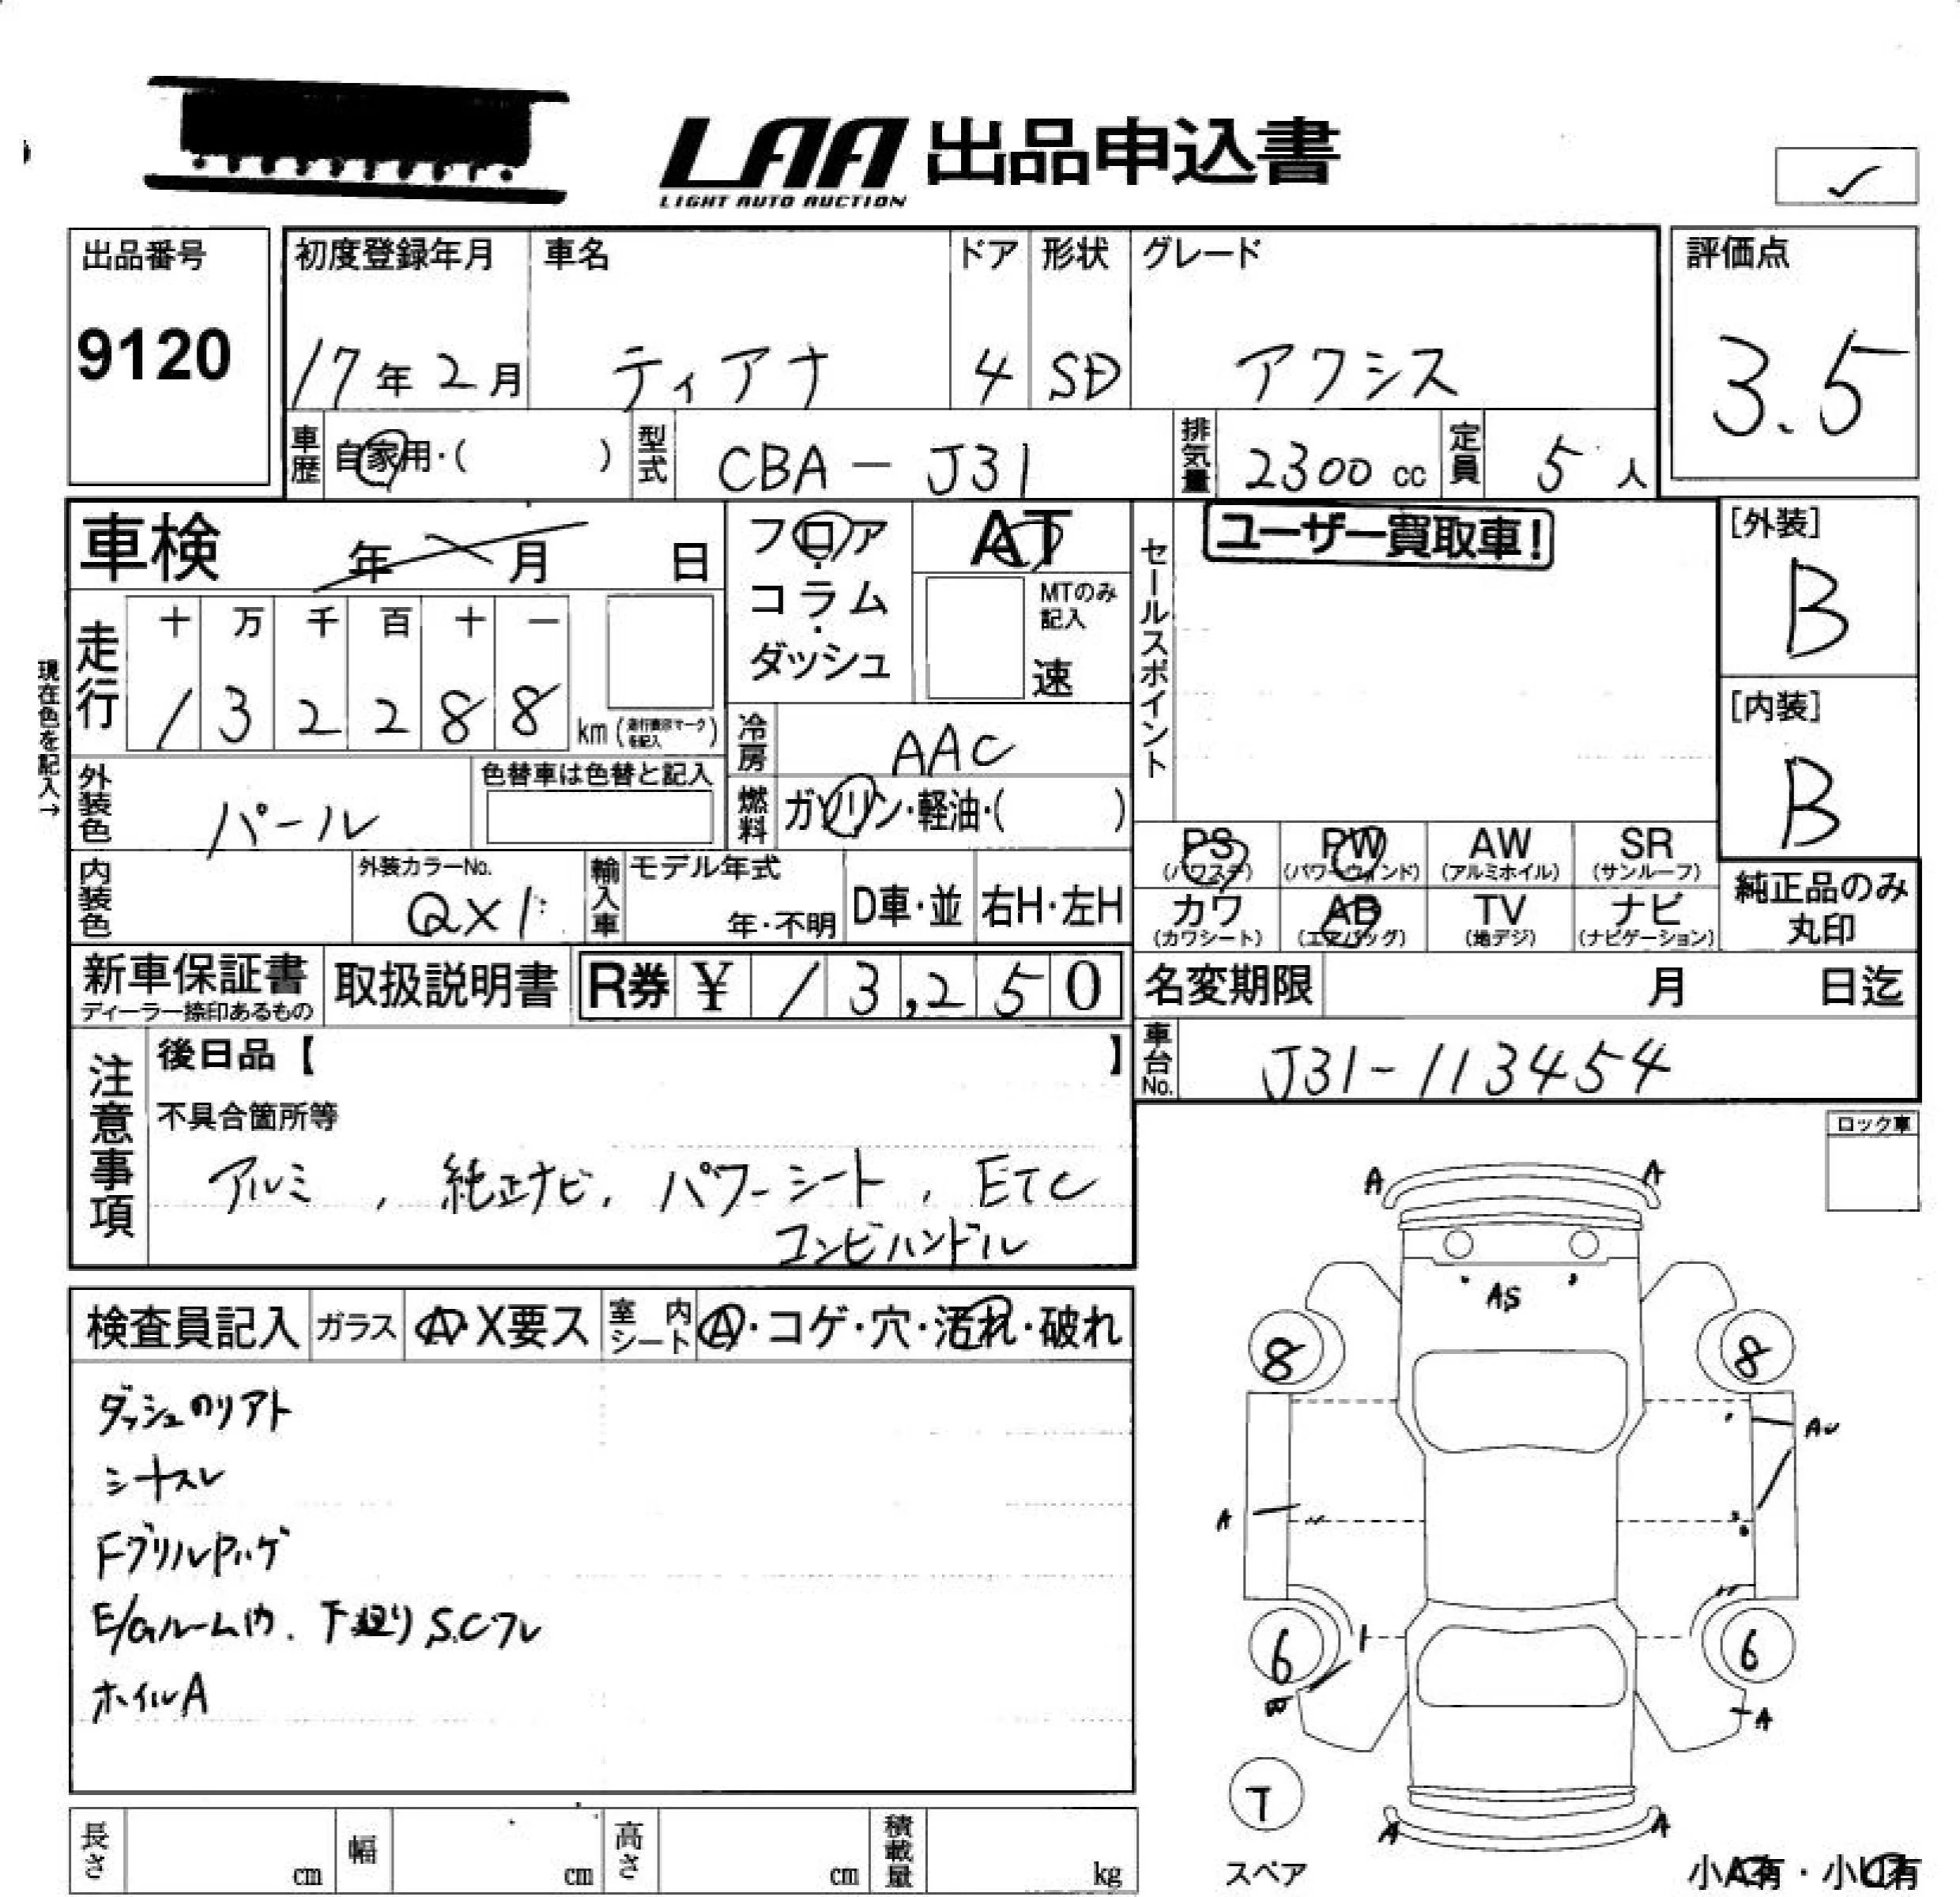 LAA 出品申込書
LIGHT AUTO AUCTION
✓
出品番号
9120
初度登録年月
17年2月
車名
ティアナ
ドア
4
形状
SD
グレード
アクシス
評価点
3.5
車歴 自家用・( )
型式 CBA-J31
排気量 2300cc
定員 5人
車検 年 月 日
フロア・コラム・ダッシュ
AT
MTのみ記入
速
セールスポイント
ユーザー買取車!
[外装]
B
[内装]
B
現在色を記入→
走行
十 万 千 百 十 一
1 3 2 2 8 8 km (走行表示マークを記入)
冷房 AAC
燃料 ガソリン・軽油・( )
外装色 パール
色替車は色替と記入
内装色
外装カラーNo.
QX1
輸入車 モデル年式
年・不明
D車・並
右H・左H
PS (パワステ)
PW (パワーウィンド)
AW (アルミホイル)
SR (サンルーフ)
カワ (カワシート)
AB (エアバッグ)
TV (地デジ)
ナビ (ナビゲーション)
純正品のみ丸印
新車保証書
ディーラー捺印あるもの
取扱説明書
R券 ¥ 13,250
名変期限 月 日迄
車台No. J31-113454
注意事項
後日品【 】
不具合箇所等
アルミ, 純正ナビ, パワーシート, ETC
コンビハンドル
ロック車
検査員記入
ガラス A・X要ス
室内シート A・コゲ・穴・汚れ・破れ
ダッシュのリアト
シートスレ
E/Gルーム内. 下廻り S.Cフレ
ホイルA
A A
AS
8 8
AU
A
6 6
A
T
スペア
A A
小A有・小U有
長さ cm
幅 cm
高さ cm
積載量 kg